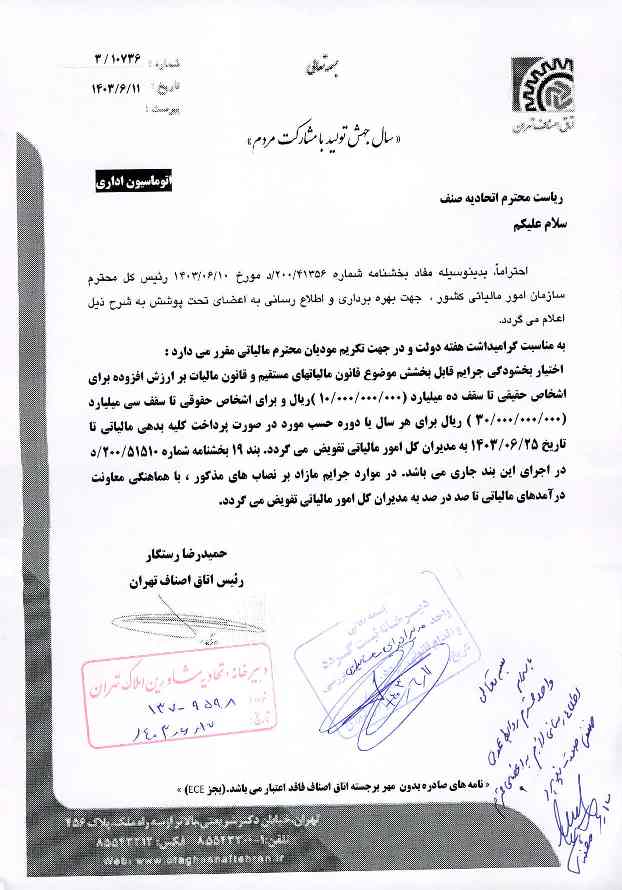 بسمه تعالی
شماره: ۳/۱۰۷۳۶
تاریخ: ۱۴۰۳/۶/۱۱
پیوست:
اتاق اصناف تهران
«سال جهش تولید با مشارکت مردم»
اتوماسیون اداری
ریاست محترم اتحادیه صنف
سلام علیکم
احتراماً، بدینوسیله مفاد بخشنامه شماره ۲۰۰/۴۱۳۵۶/د مورخ ۱۴۰۳/۰۶/۱۰ رئیس کل محترم
سازمان امور مالیاتی کشور ، جهت بهره برداری و اطلاع رسانی به اعضای تحت پوشش به شرح ذیل
اعلام می گردد.
به مناسبت گرامیداشت هفته دولت و در جهت تکریم مودیان محترم مالیاتی مقرر می دارد :
اختیار بخشودگی جرایم قابل بخشش موضوع قانون مالیاتهای مستقیم و قانون مالیات بر ارزش افزوده برای
اشخاص حقیقی تا سقف ده میلیارد (۱۰/۰۰۰/۰۰۰/۰۰۰) ریال و برای اشخاص حقوقی تا سقف سی میلیارد
(۳۰/۰۰۰/۰۰۰/۰۰۰ ) ریال برای هر سال یا دوره حسب مورد در صورت پرداخت کلیه بدهی مالیاتی تا
تاریخ ۱۴۰۳/۰۶/۲۵ به مدیران کل امور مالیاتی تفویض می گردد. بند ۱۹ بخشنامه شماره ۲۰۰/۵۱۵۱۰/د
در اجرای این بند جاری می باشد. در موارد جرایم مازاد بر نصاب های مذکور ، با هماهنگی معاونت
درآمدهای مالیاتی تا صد در صد به مدیران کل امور مالیاتی تفویض می گردد.
حمیدرضا رستگار
رئیس اتاق اصناف تهران
دبیرخانه اتحادیه مشاورین املاک تهران
شماره: ۱۳۷-۹۵۹۸
تاریخ:
بسمه تعالی
« نامه های صادره بدون مهر برجسته اتاق اصناف فاقد اعتبار می باشد.(بجز ECE) »
تهران، خیابان دکتر شریعتی، بالاتر از سه راه ملک، پلاک ۴۵۶
تلفن: ۱-۸۵۵۴۳۲۰۰ فکس: ۸۵۵۴۳۲۱۲
Web: www.otaghasnaftehran.ir